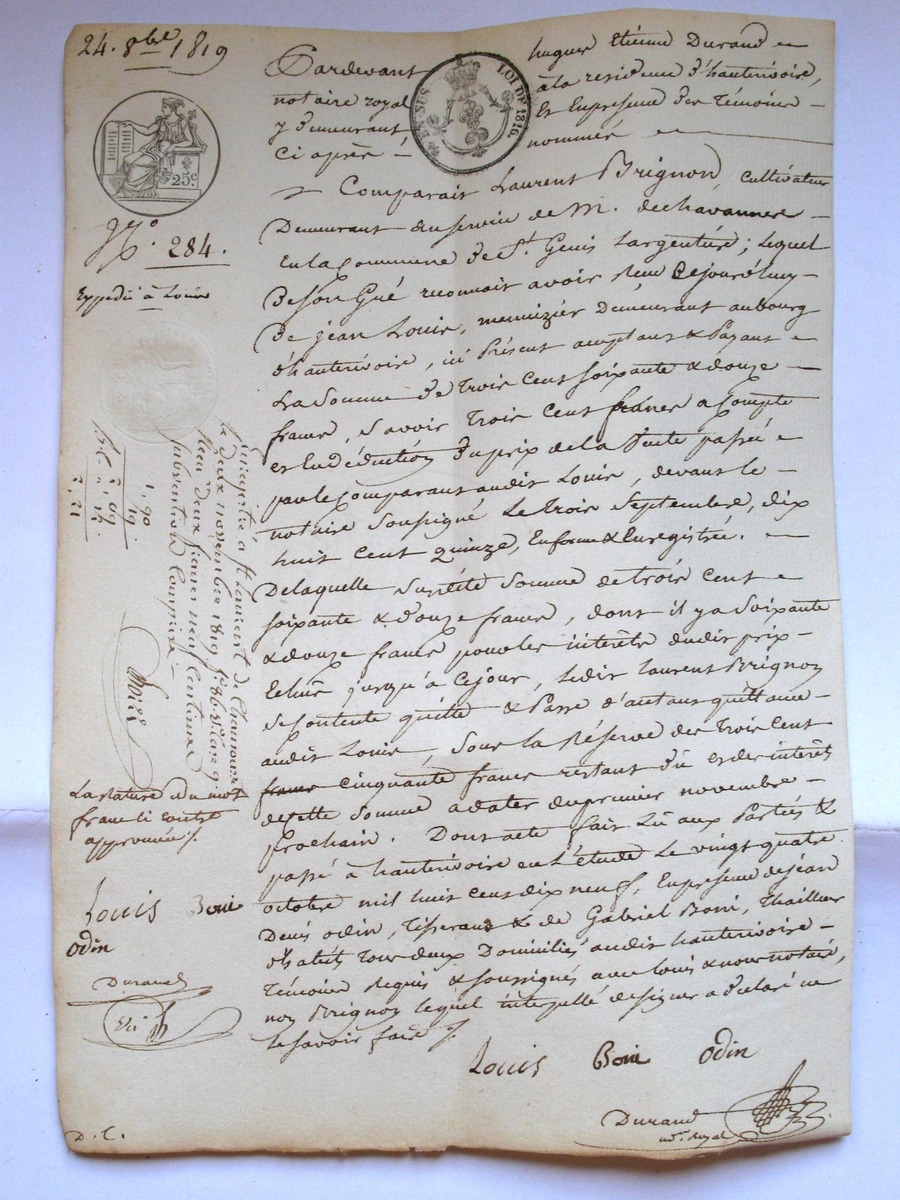 24. 8bre 1819
Pardevant hugues Etienne Durand
notaire royal à la résidence d'hauterivoire,
y demeurant Et En présence des témoins
ci après nommés
EN SUS
LOI DE 1816.
25c.
No. 284.
Expédié à Louis
Comparait Laurent Brignon, cultivateur
Demeurant au service de M. dechavannes
En la Commune de St. Genis Largentière; lequel
De son Gré reconnait avoir reçu Cejourd'huy
De jean Louis, menuizier Demeurant au bourg
d'hauterivoire, ici Présent acceptant & Payant
La Somme De trois Cent soixante & douze
francs, Savoir trois Cent francs a Compte
et En déduction Du prix de la Vente passée
par le Comparant audit Louis, devant le
notaire soussigné Le trois Septembre, dix
huit cent quinze, En forme & Enregistrée.
De laquelle susdite somme de trois cent
soixante & douze francs, dont il y a soixante
& douze francs pour les intérêts dudit prix
Echus jusqu'à Cejour, ledit laurent Brignon
se contente quitte & Passe d'autant quittance
audit Louis, Sous la Réserve des trois Cent
francs cinquante francs restant dû et des intérêts
de cette somme a dater du premier novembre
prochain. Dont acte fait Lû aux Parties &
passé à hauterivoire en L'étude Le vingt quatre
octobre mil huit cent dix neuf, En présence de jean
Denis odin, Tisserand & de Gabriel Boni, thailleur
d'habits tous deux Domiciliés audit hauterivoire
témoins requis & soussignés avec louis & nous notaire,
non Brignon lequel interpellé de signer a déclaré ne
le savoir faire ./.
Louis Boni odin
Durand
nore. Royal
Enregistré à St Laurent de Chamousset
le deux novembre 1819
Reçu deux francs neuf Centimes
subvention Comprise
1,90
19
2,09
12
2,21
La rature du mot
franc ci contre
approuvée ./.
Louis Boni
odin
Durand
D. C.